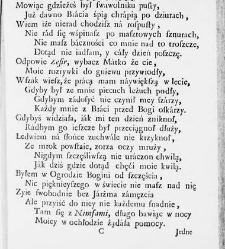 Mowiąc gdzieżeś był swawolniku pusty,
Już dawno Bracia śpią chrapią po dziurach,
Wiem że nierad chodzisz na rospusty,
Nie rad się wspinasz po masztowych sznurach,
Nie masz baczności co mnie nad to troszcze,
Dotąd nie iadłam, y cały dzień poszczę.
Odpowie Zefir, wybacz Matko że cie,
Moie rozrywki do gniewu przywodzły,
Wszak wiesz, że pracą mam naywiększą w lecie,
Gdyby był ze mnie piecuch leżach podły,
Gdybym zadosyć nie czynił mey sfárzy,
Każdy mnie z Bráci przed Bogi oskárzy.
Gdybyś widziała, iák mi ten dzień zniknoł,
Radbym go ieszcze był przeciągnoł dłużey,
Ledwiem na słońce zuchwále nie krzyknoł,
Ze mrok powstaie, zorza oczy mruży,
Nigdym szczęśliwszą nie uraczon chwilą,
Jak dziś gdzie dotąd chęci moie kwilą.
Byłem w Ogrodzie Bogini od szczęścia,
Nic pięknieyszego w świecie nie masz nad nię
Zyie swobodnie bez Járzma zamęzcia
Ale przyiść do niey nie każdemu snadnie,
Tam się z Nimfami, długo bawiąc w nocy
Moiey w ochłodzie żądała pomocy.
C Jedne